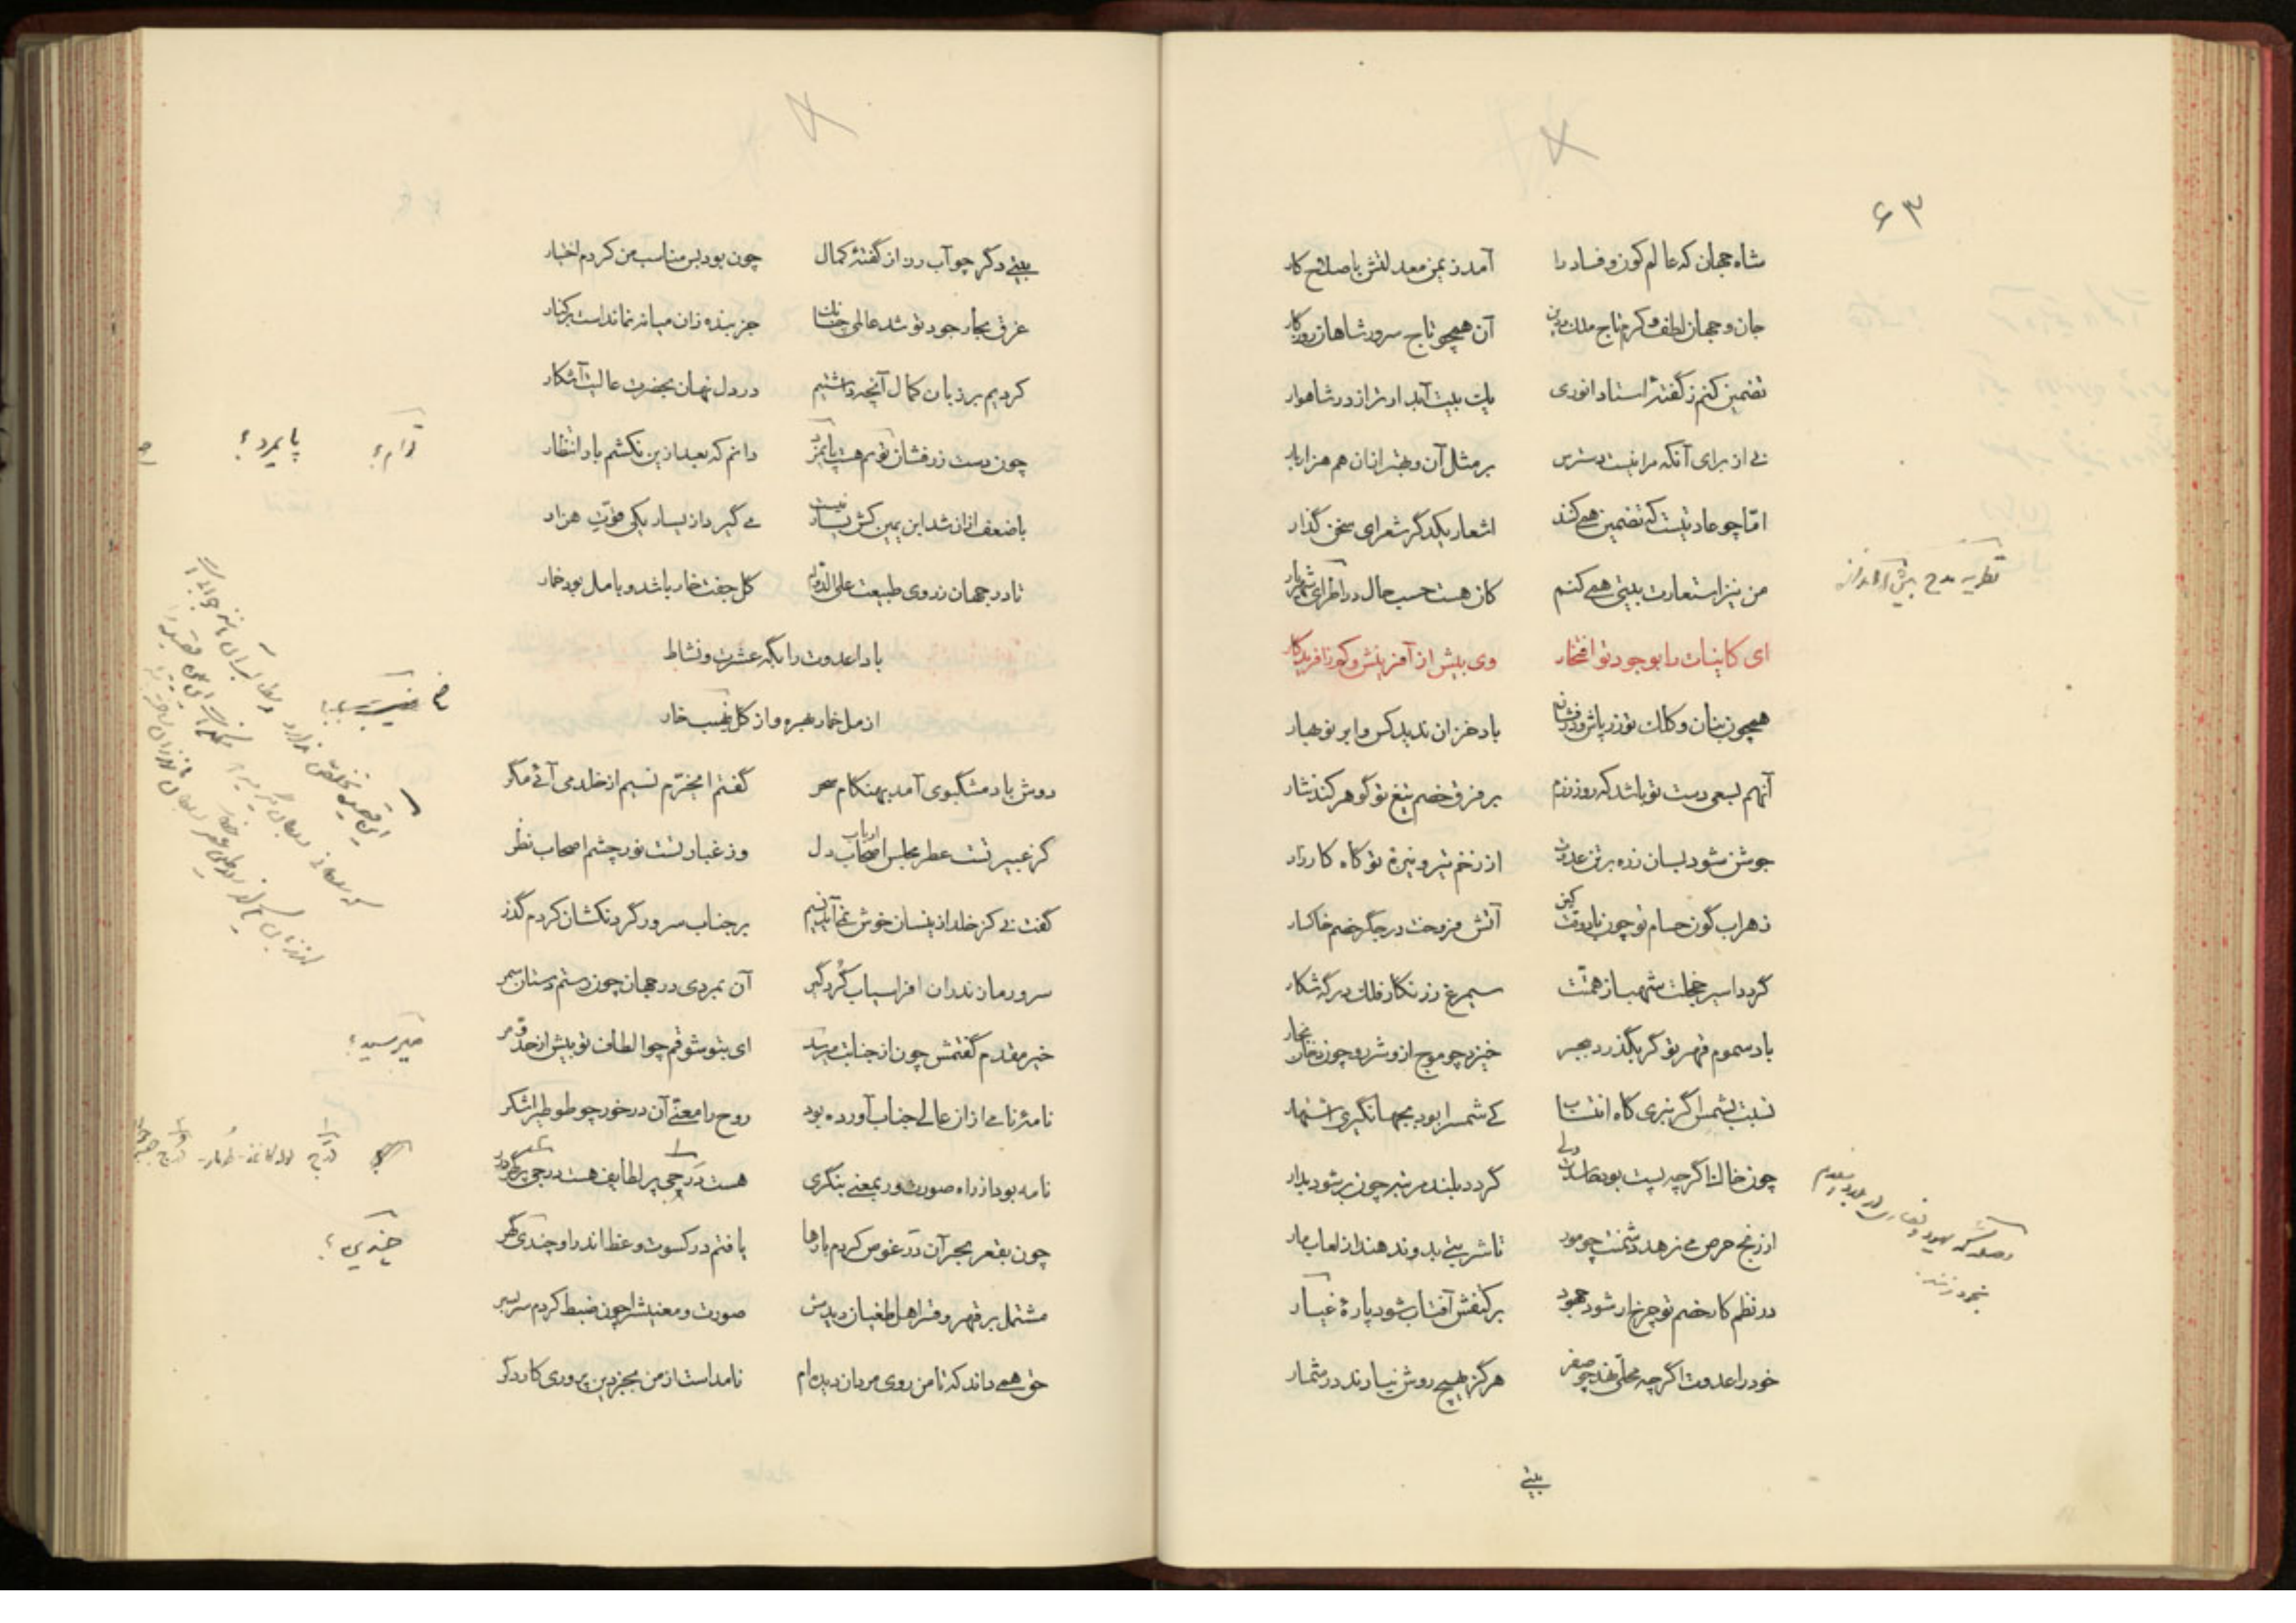 ۶۳
شاه جهان که عالم کون و فساد را آمد ز یمن معدلتش با صلاح کار
جان و جهان لطف و کرم تاج ملک و دین آن همچو تاج سرور شاهان روزگار
تضمین کنم ز گفتهٔ استاد انوری یک بیت آبدارتر از در شاهوار
نی از برای آنکه مرا نیست دسترس بر مثل آن و بهتر از آن هم هزار بار
اما چو عادتیست که تضمین همی کنند اشعار یکدگر شعرای سخن گذار
من نیز استعارت بیتی همی کنم کان هست حسب حال در اطرای شهریار
ای کاینات را بوجود تو افتخار وی بیش از آفرینش و کم ز آفریدگار
همچون بنان و کلک تو زرپاش و درفشان باد خزان ندید کس و ابر نوبهار
آنهم بسعی دست تو باشد که روز رزم بر فرق خصم تیغ تو گوهر کند نثار
جوشن شود بسان زره بر تن عدوت از زخم تیر و نیزهٔ تو گاه کارزار
زهراب گون حسام تو چون باد وقت کین آتش فروخت در جگر خصم خاکسار
گردد اسیر مخلب شهباز همتت سیمرغ زرنگار فلک در گه شکار
باد سموم قهر تو گر بگذرد ببحر خیزد چو موج ازو شرر و چون دخان بخار
نسبت بشمس اگر نبری گاه انتساب کی شمس را بود بجهانگیری اشتهار
چون خاک اگر چه پست بود حاسدت ولی گردد بلند مرتبه چون بر شود بدار
از رنج حرص می نرهد دشمنت چو مور تا شربتی بدو ندهند از لعاب مار
در نظم کار خصم تو چرخ ار شود جهود بر کتفش آفتاب شود پارهٔ غیار
خود را عدوت اگر چه محلی نهد چو صفر هرگز بهیچ روش نیارند در شمار
بیتی
بیتی دگر چو آب روان از گفتهٔ کمال چون بود بس مناسب من کردم اختیار
غرق بحار جود تو شد عالمی چنانک جز بنده زان میانه نماندست بر کنار
کردیم بر زبان کمال آنچه داشتیم در دل نهان بحضرت عالیت آشکار
چون دست زرفشان توام هست پایمرد دانم که بعد ازین نکشم بار انتظار
پایمرد؟
با ضعف ازان شد ابن یمین کش یسار نیست می گیرد از یسار یکی قوت هزار
تا در جهان ز روی طبیعت علی الدوام گل جفت خار باشد و با مل بود خمار
بادا عدوت را بگه عشرت و نشاط
از مل خمار بهره و از گل نصیب خار
دوش باد مشگبوی آمد بهنگام سحر گفتم ای محترم نسیم از خلد می آئی مگر
کز عبیر تست عطر مجلس اصحاب دل ارباب وز غبار تست نور چشم اصحاب نظر
گفت نی کز خلد ازینسان خوش نمی آید نسیم بر جناب سرور گردنکشان کردم گذر
سرور مازندران افراسیاب گردگیر آن بمردی در جهان چون رستم دستان سمر
خیر مقدم گفتمش چون از جنابت میرسد ای بتو شوقم چو الطاف تو بیش از حد و مر
میرسید؟
نامهٔ نامی ازان عالی جناب آورده بود روح را معنی آن در خور چو طوطی را شکر
نامه بود از راه صورت ور بمعنی بنگری هست درجی پر لطایف هست درجی پر گهر
چون بقعر بحر آن در غوص کردم بارها یافتم در کسوت وعظ اندر او چندی گهر
مشتمل بر قهر و قتل اهل طغیان دیدمش صورت و معنیش را چون ضبط کردم سر بسر
حق همی داند که تا من روی مردان دیده ام نامداست از من بجز دین پروری کار دگر